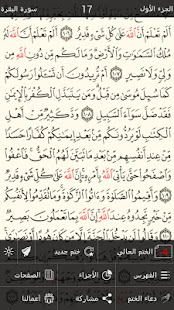 سورة البقرة 17 الجزء الأول
أَلَمْ تَعْلَمْ أَنَّ ٱللَّهَ عَلَىٰ كُلِّ شَىْءٍ قَدِيرٌ ١٠٦ أَلَمْ تَعْلَمْ أَنَّ ٱللَّهَ لَهُۥ
مُلْكُ ٱلسَّمَٰوَٰتِ وَٱلْأَرْضِ وَمَا لَكُم مِّن دُونِ ٱللَّهِ
مِن وَلِىٍّ وَلَا نَصِيرٍ ١٠٧ أَمْ تُرِيدُونَ أَن تَسْـَٔلُوا۟ رَسُولَكُمْ
كَمَا سُئِلَ مُوسَىٰ مِن قَبْلُ وَمَن يَتَبَدَّلِ ٱلْكُفْرَ بِٱلْإِيمَٰنِ
فَقَدْ ضَلَّ سَوَآءَ ٱلسَّبِيلِ ١٠٨ وَدَّ كَثِيرٌ مِّنْ أَهْلِ
ٱلْكِتَٰبِ لَوْ يَرُدُّونَكُم مِّنۢ بَعْدِ إِيمَٰنِكُمْ كُفَّارًا
حَسَدًا مِّنْ عِندِ أَنفُسِهِم مِّنۢ بَعْدِ مَا تَبَيَّنَ لَهُمُ ٱلْحَقُّ فَٱعْفُوا۟
وَٱصْفَحُوا۟ حَتَّىٰ يَأْتِىَ ٱللَّهُ بِأَمْرِهِۦٓ إِنَّ ٱللَّهَ عَلَىٰ كُلِّ شَىْءٍ
قَدِيرٌ ١٠٩ وَأَقِيمُوا۟ ٱلصَّلَوٰةَ وَءَاتُوا۟ ٱلزَّكَوٰةَ وَمَا تُقَدِّمُوا۟ لِأَنفُسِكُم
مِّنْ خَيْرٍ تَجِدُوهُ عِندَ ٱللَّهِ إِنَّ ٱللَّهَ بِمَا تَعْمَلُونَ بَصِيرٌ
الختم الحالي ختم جديد
الفهرس الأجزاء الصفحات
دعاء الختم مشاركة أعمالنا